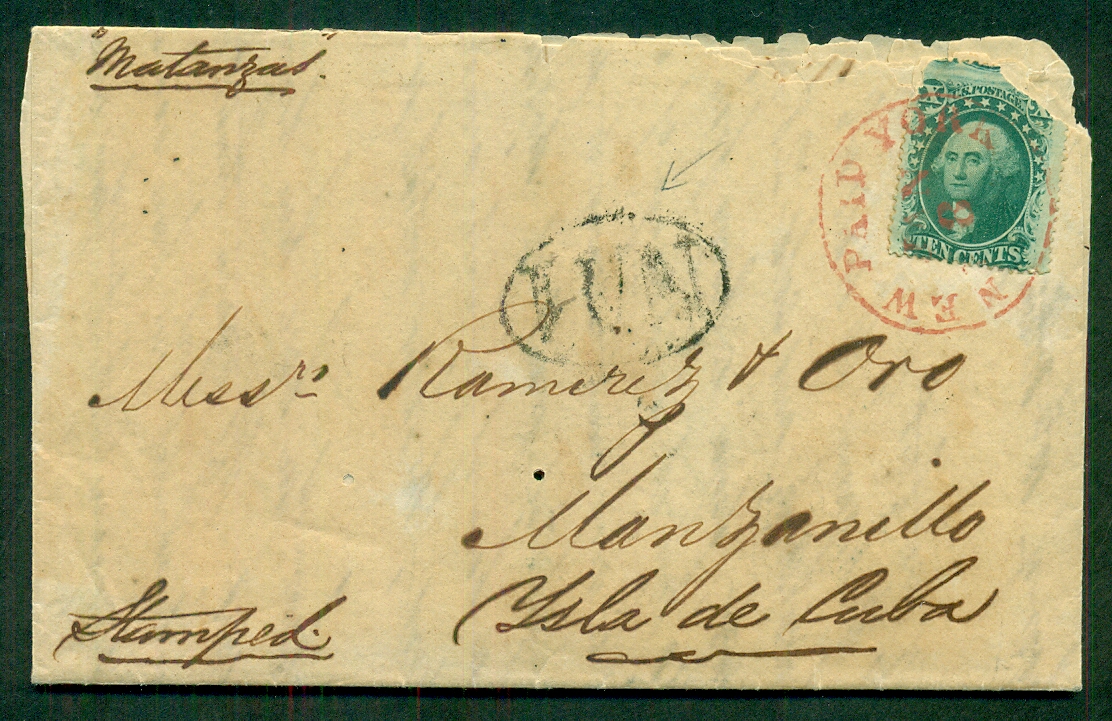 "Matanzas"
U.S. POSTAGE
X
TEN CENTS
NEW PAID YORK
Messrs. Ramirez & Oro
Manzanillo
Ysla de Cuba
Stamped.